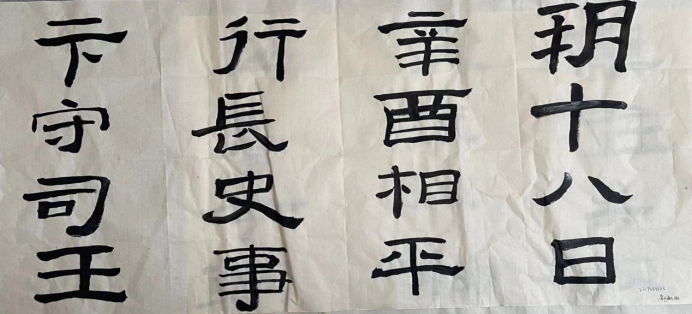 朔十八日
辛酉相平
行長史事
卞守司王